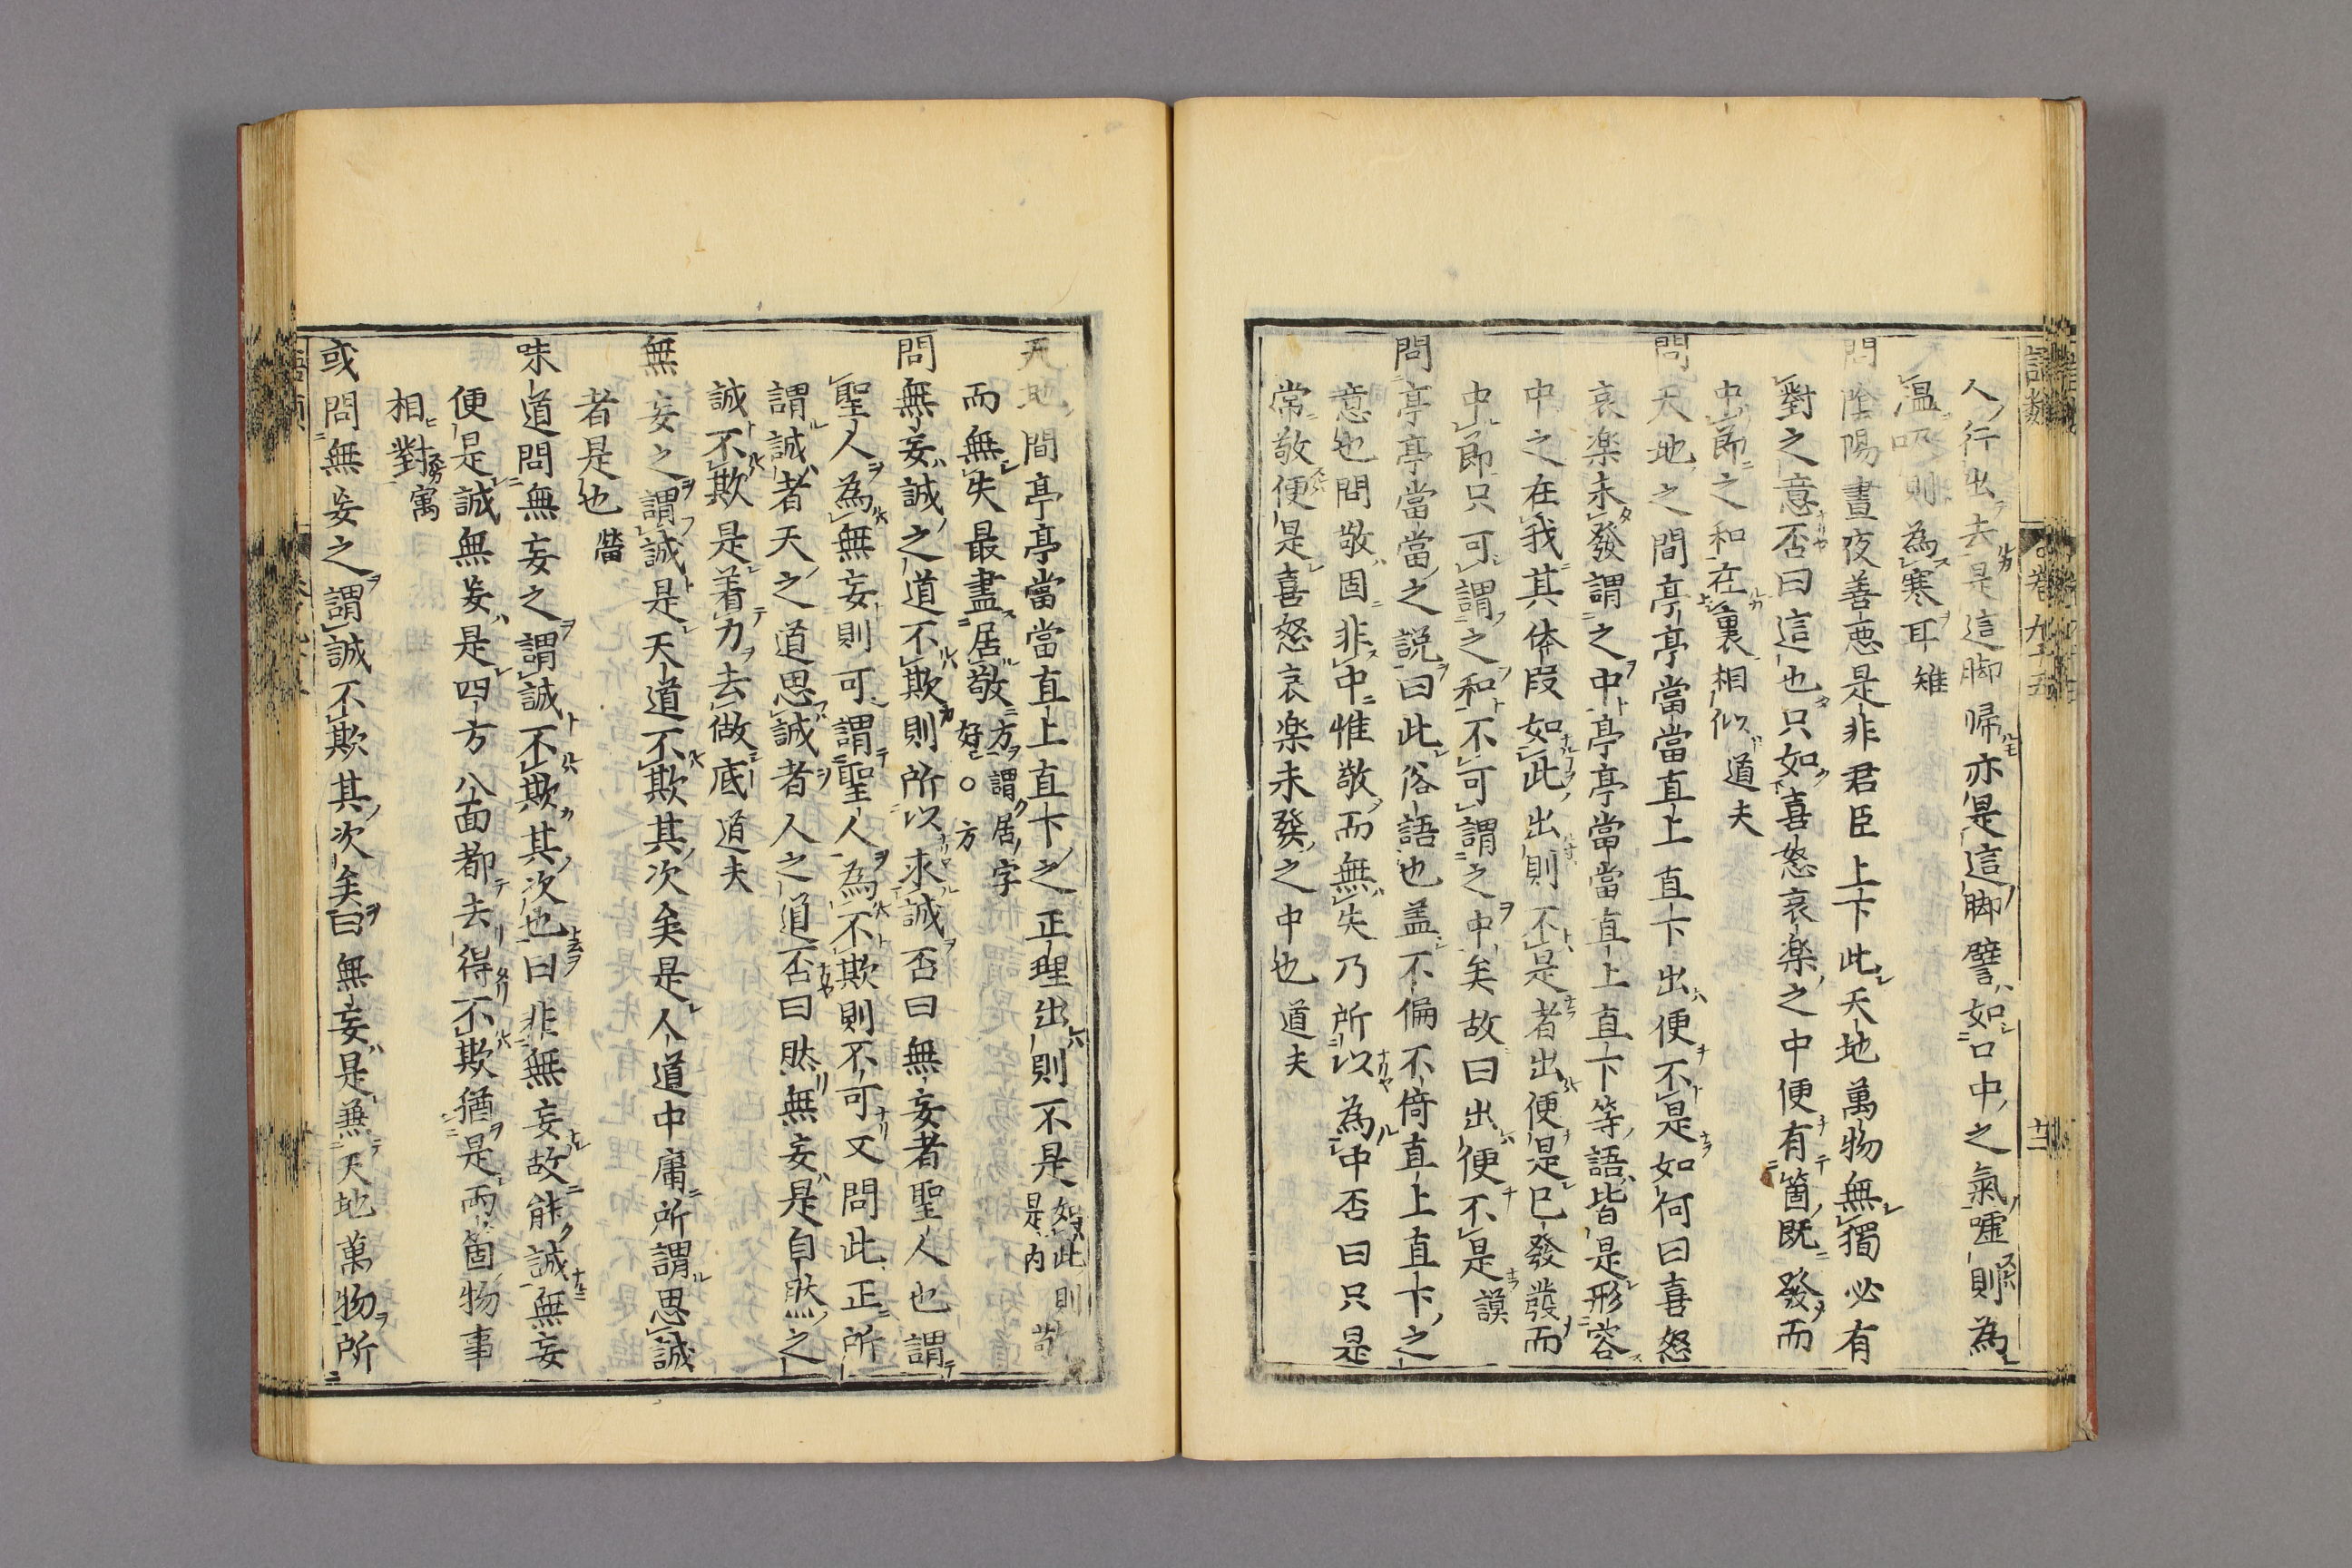 人行出去是這脚帰亦是這脚譬如口中之氣噓則為
温吸則為寒耳 雉
問陰陽晝夜善悪是非君臣上下此天地萬物無獨必有
對之意否曰這也只如喜怒哀楽之中便有箇既發而
中節之和在裏相似 道夫
問天地之間亭亭當當直上直下出便不是如何曰喜怒
哀楽未發謂之中亭亭當當直上直下等語皆是形容
中之在我其体段如此出則不是者出便是已發發而
中節只可謂之和不可謂之中矣故曰出便不是 謨
問亭亭當當之説曰此俗語也盖不偏不倚直上直下之
意也問敬固非中惟敬而無失乃所以為中否曰只是
常敬便是喜怒哀楽未發之中也 道夫
語類
卷九十五
天地間亭亭當當直上直下之正理出則不是 如此則
是内
而無失最盡居敬 方謂居字
好〇方
問無妄誠之道不欺則所以求誠否曰無妄者聖人也謂
聖人為無妄則可謂聖人為不欺則不可又問此正所
謂誠者天之道思誠者人之道否曰然無妄是自然之
誠不欺是着力去做底 道夫
無妄之謂誠是天道不欺其次矣是人道中庸所謂思誠
者是也 㽦
味道問無妄之謂誠不欺其次也曰非無妄故能誠無妄
便是誠無妄是四方八面都去得不欺猶是兩箇物事
相對 㝢
或問無妄之謂誠不欺其次矣曰無妄是兼天地萬物所